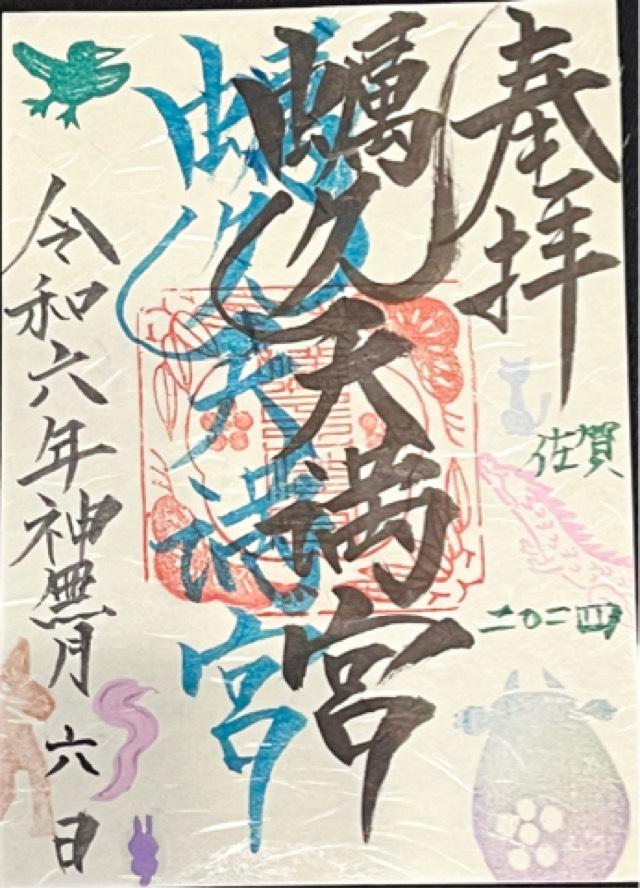 奉拝
佐賀
二〇二四
蠣久天満宮
蠣久天満宮
令和六年神無月六日